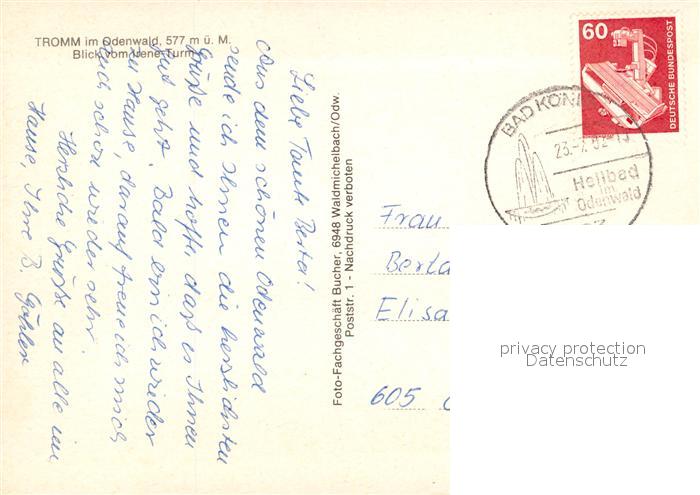 TROMM im Odenwald, 577 m ü. M.
Blick vom Irene-Turm
Liebe Tante Berta!
Aus dem schönen Odenwald
sende ich Ihnen die herzlichsten
Grüße und hoffe, daß es Ihnen
gut geht. Bald bin ich wieder
zu Hause, darauf freue ich mich
auch schon wieder sehr.
Herzliche Grüße an alle im
Hause, Ihre B.
Foto-Fachgeschäft Bucher, 6948 Waldmichelbach/Odw.
Poststr. 1 - Nachdruck verboten
60
DEUTSCHE BUNDESPOST
BAD KÖNI
23.-7.82-15
Heilbad
im
Odenwald
Frau
Berta
Elisa
605
privacy protection
Datenschutz